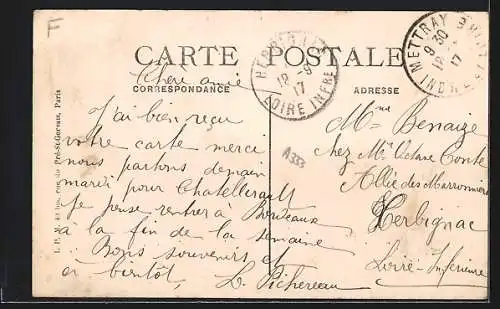 F
CARTE POSTALE
CORRESPONDANCE
ADRESSE
Chère amie
J'ai bien reçu
votre carte merci
nous partons demain
mardi pour Chatellerault
Je pense rentrer à Bordeaux
à la fin de la semaine
Bons souvenirs et
à bientôt, L. Pichereau
Mme Benaize
chez Mr Octave Conte
Allée des Marronniers
Herbignac
Loire-Inférieure
HERBIGNAC
18 -9
17
LOIRE INFRE
METTRAY
9 30
18
17
INDRE
A333
Pré-St-Gervais, Paris